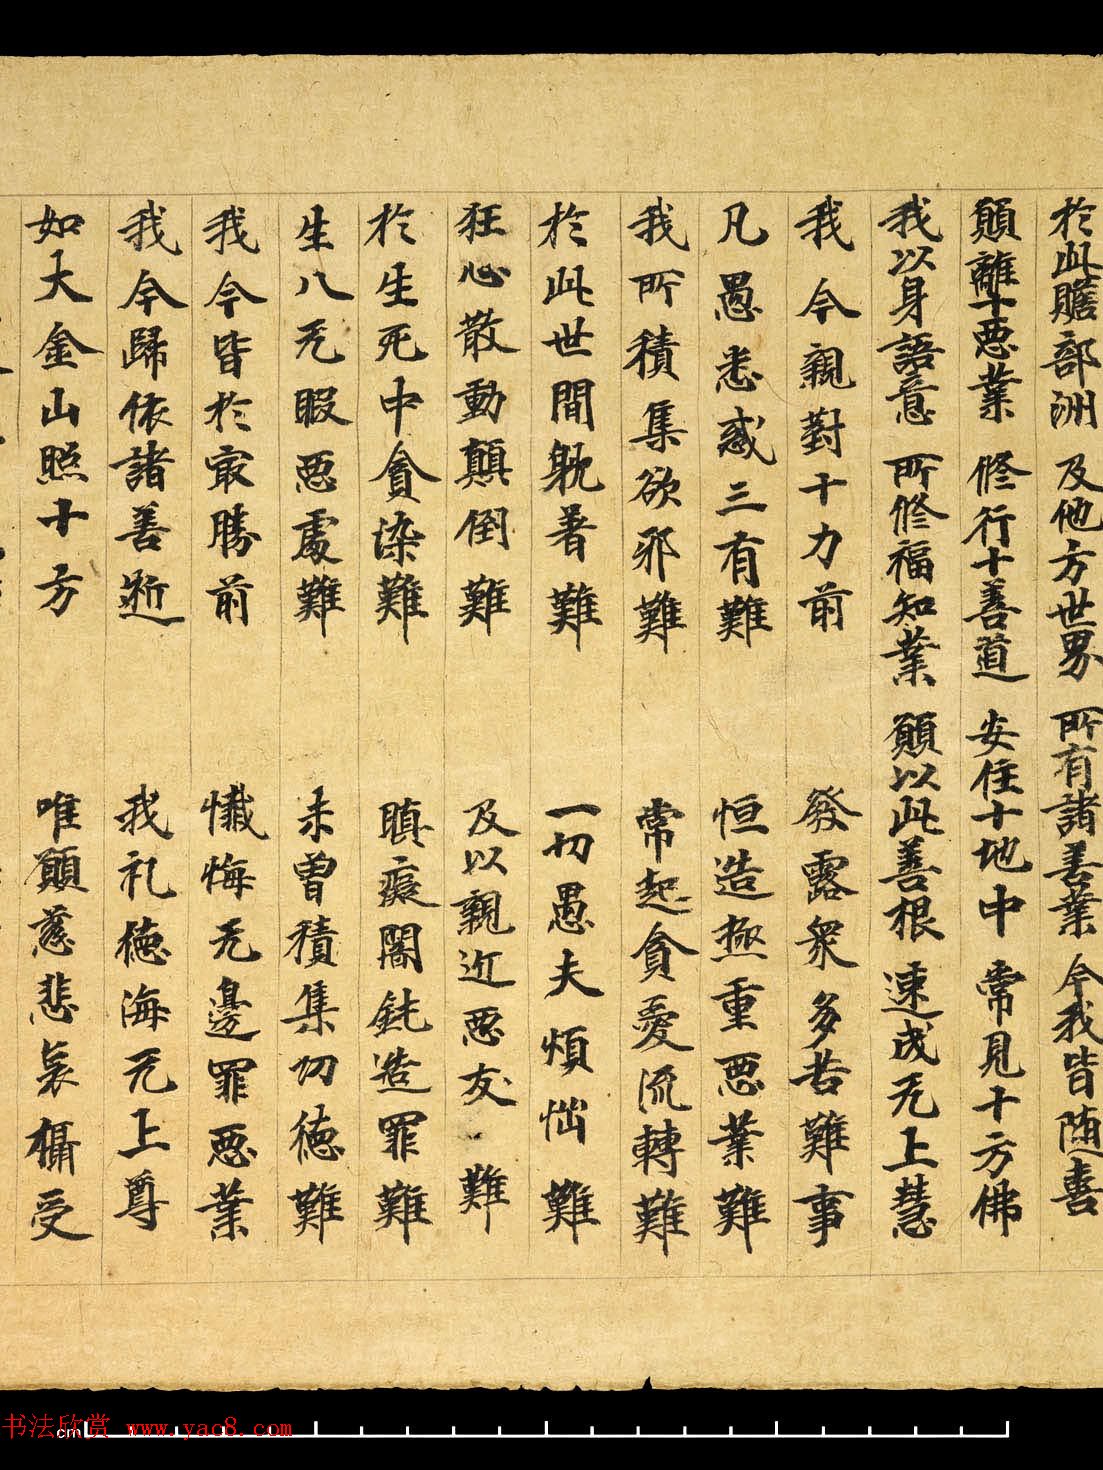 於此贍部洲 及他方世界 所有諸善業 今我皆随喜
願離十惡業 修行十善道 安住十地中 常見十方佛
我以身語意 所修福知業 願以此善根 速成无上慧
我今親對十力前 發露衆多苦難事
凡愚悉惑三有難 恒造極重惡業難
我所積集欲邪難 常起貪愛流轉難
於此世間躭著難 一切愚夫煩惱難
狂心散動顛倒難 及以親近惡友難
於生死中貪染難 瞋癡闇鈍造罪難
生八无暇惡處難 未曾積集功德難
我今皆於最勝前 懺悔无邊罪惡業
我今歸依諸善逝 我礼德海无上尊
如大金山照十方 唯願慈悲哀攝受
书法欣赏 www.yac8.com
cm